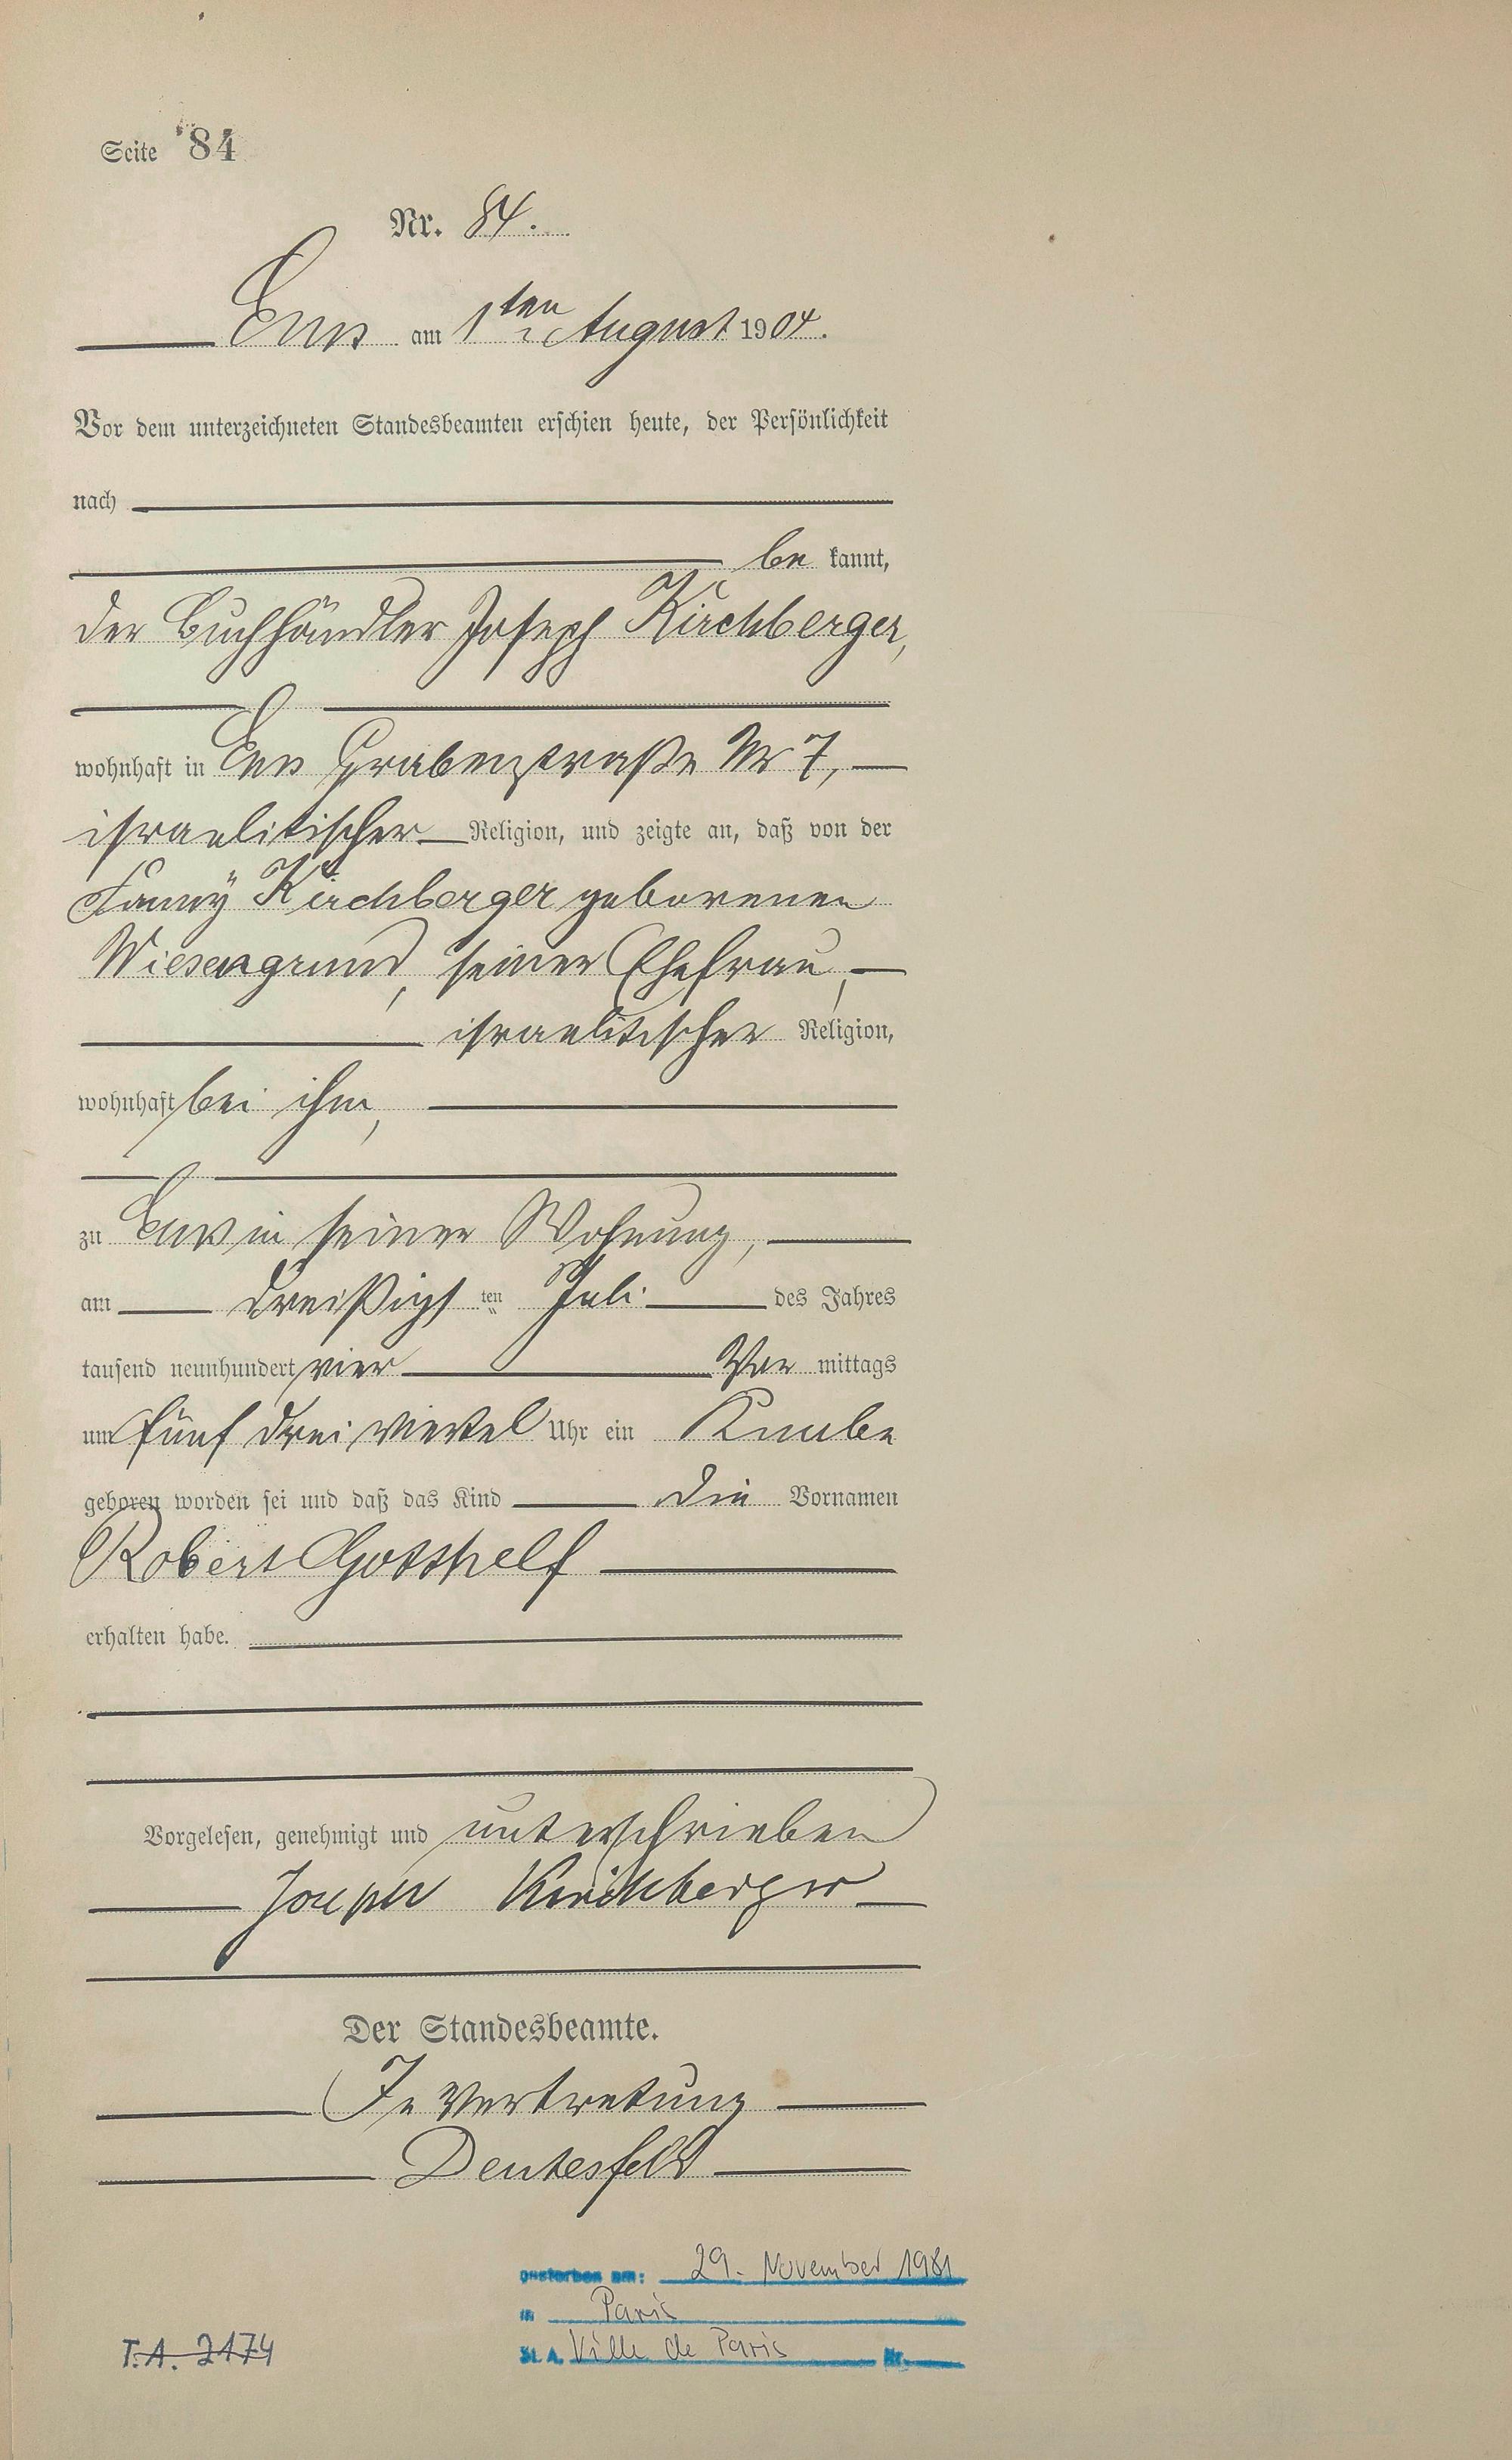 Seite 84
Nr. 84.
Ems am 1ten August 1904.
Vor dem unterzeichneten Standesbeamten erschien heute, der Persönlichkeit
nach
be kannt,
der Buchhändler Joseph Kirchberger,
wohnhaft in Ems Grabenstraße Nr 7,
israelitischer Religion, und zeigte an, daß von der
Fanny Kirchberger geborenen
Wiesengrund, seiner Ehefrau,
israelitischer Religion,
wohnhaft bei ihm,
zu Ems in seiner Wohnung,
am dreißigsten Juli des Jahres
tausend neunhundert vier Vor mittags
um fünf drei viertel Uhr ein Knabe
geboren worden sei und daß das Kind die Vornamen
Robert Gotthelf
erhalten habe.
Vorgelesen, genehmigt und unterschrieben
Joseph Kirchberger
Der Standesbeamte.
In Vertretung
Deutesfeld
gestorben am: 29. November 1981
in Paris
St. A. Ville de Paris Nr.
T.A. 2174